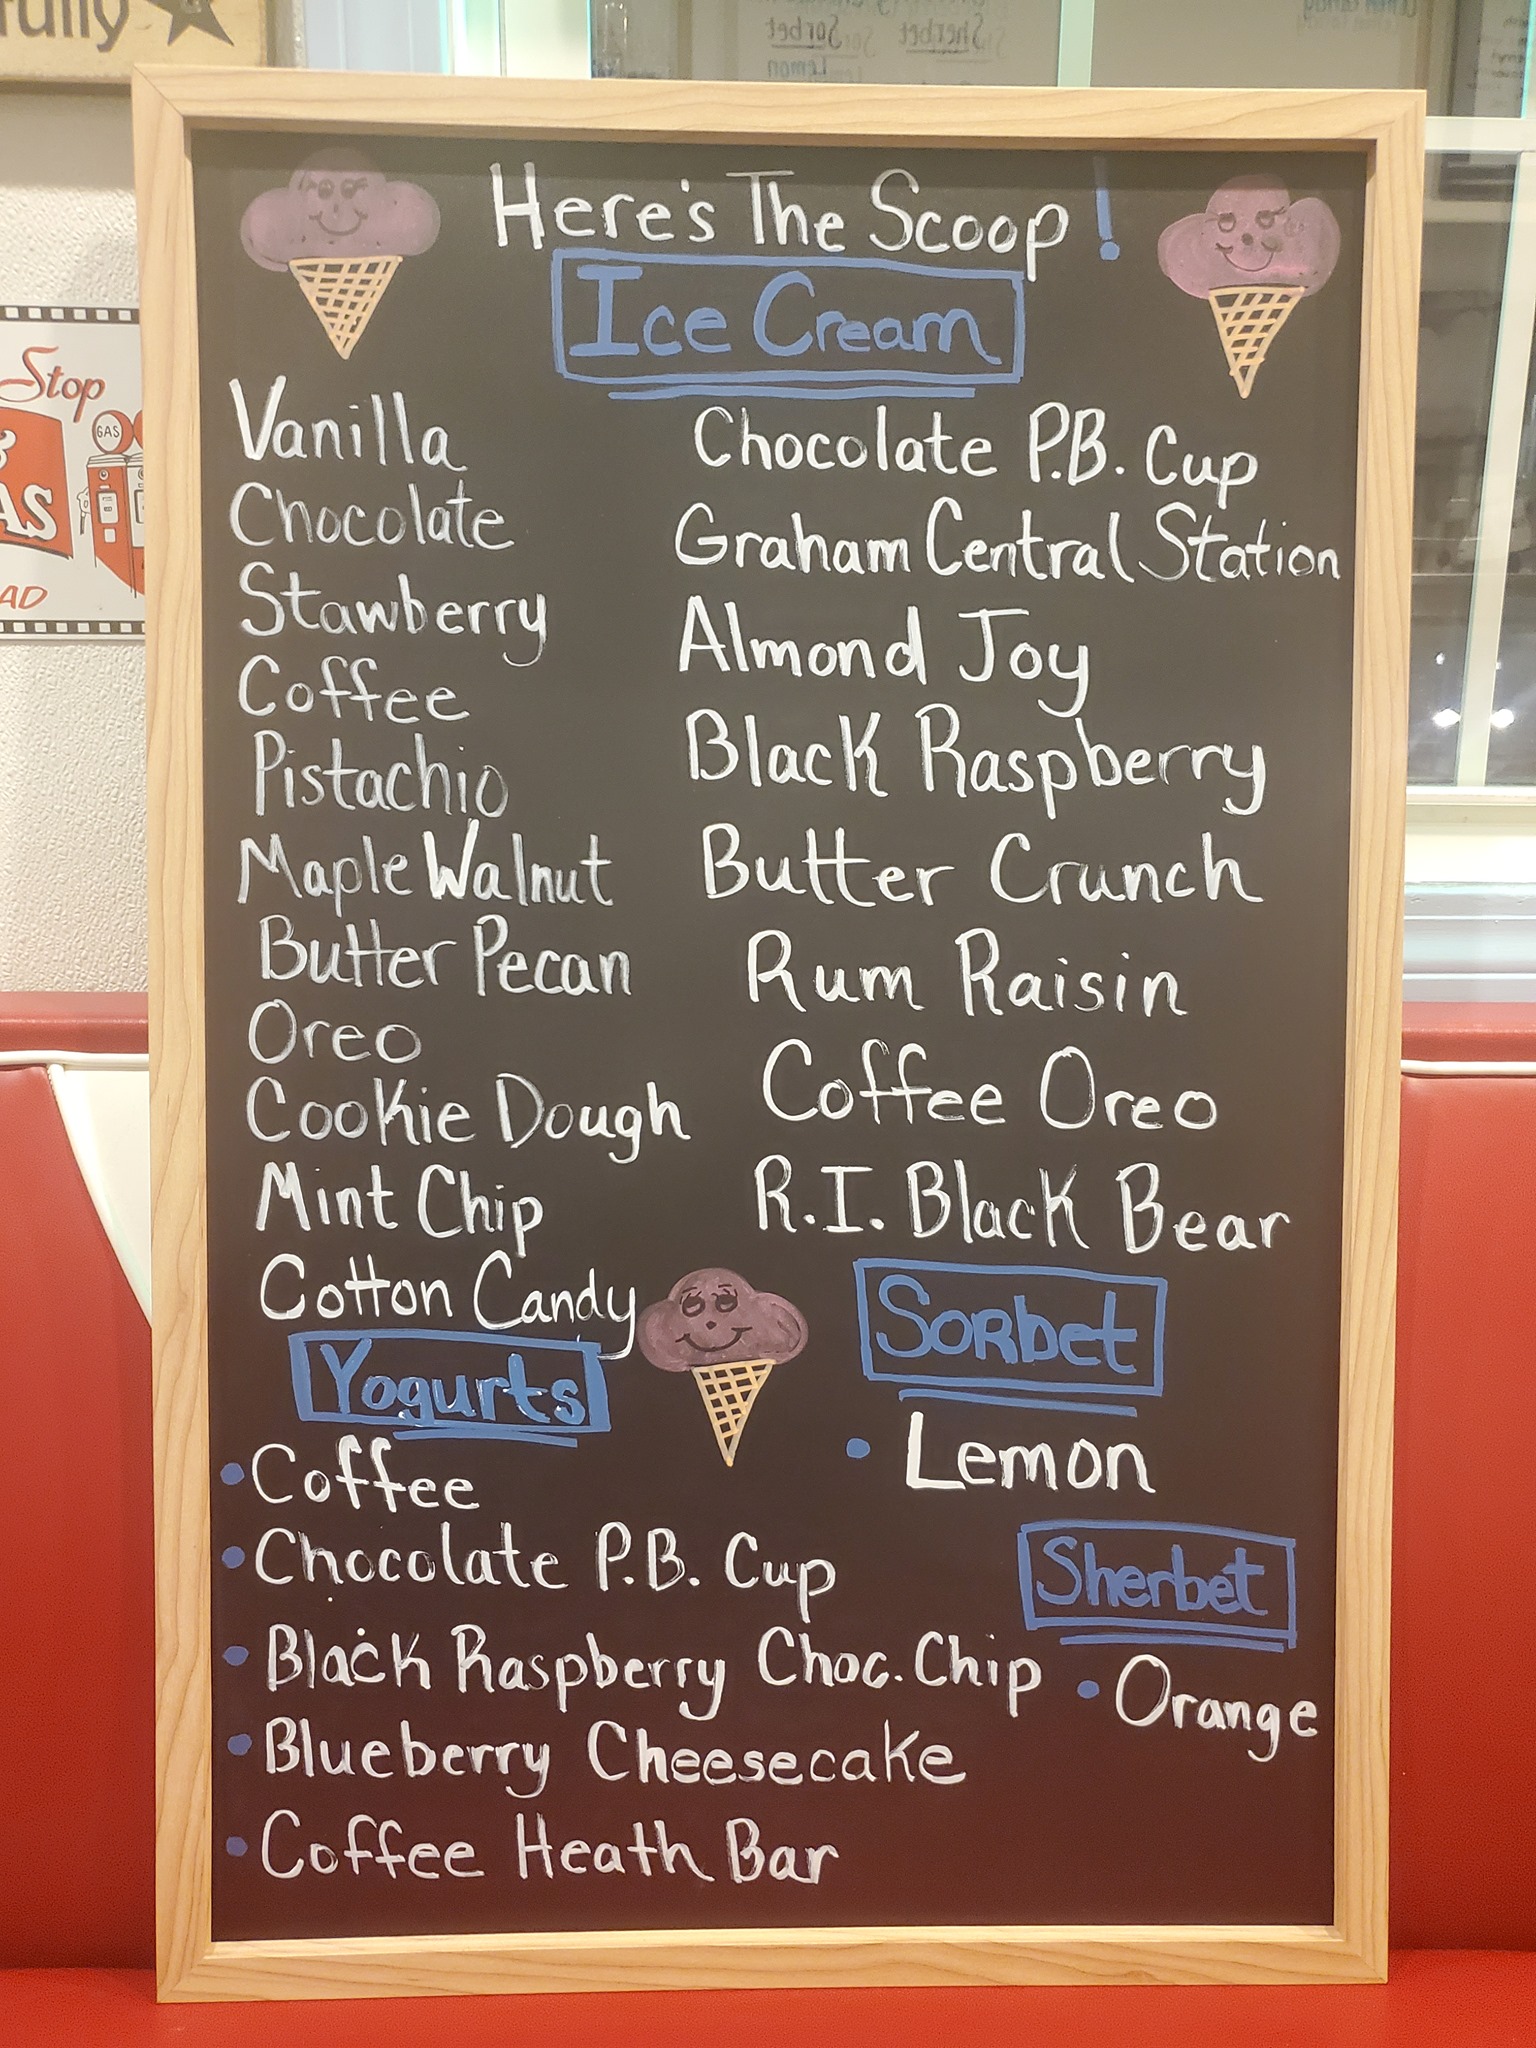 fully
Stop
GAS
&
AS
AD
Sherbet
Sorbet
Lemon
Here's The Scoop!
Ice Cream
Vanilla
Chocolate
Stawberry
Coffee
Pistachio
Maple Walnut
Butter Pecan
Oreo
Cookie Dough
Mint Chip
Cotton Candy
Chocolate P.B. Cup
Graham Central Station
Almond Joy
Black Raspberry
Butter Crunch
Rum Raisin
Coffee Oreo
R.I. Black Bear
Yogurts
• Coffee
• Chocolate P.B. Cup
• Black Raspberry Choc. Chip
• Blueberry Cheesecake
• Coffee Heath Bar
Sorbet
• Lemon
Sherbet
• Orange